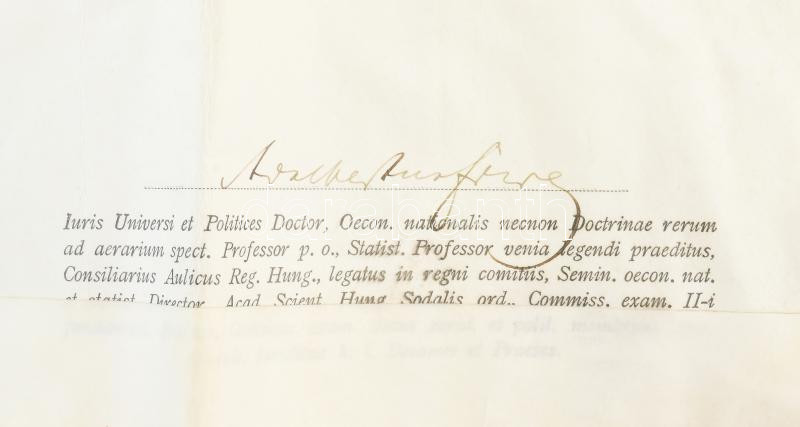 Adalbertus
Iuris Universi et Politices Doctor, Oecon. nationalis necnon Doctrinae rerum
ad aerarium spect. Professor p. o., Statist. Professor venia legendi praeditus,
Consiliarius Aulicus Reg. Hung., legatus in regni comitiis, Semin. oecon. nat.
et statist Director, Acad Scient Hung Sodalis ord., Commiss. exam. II-i